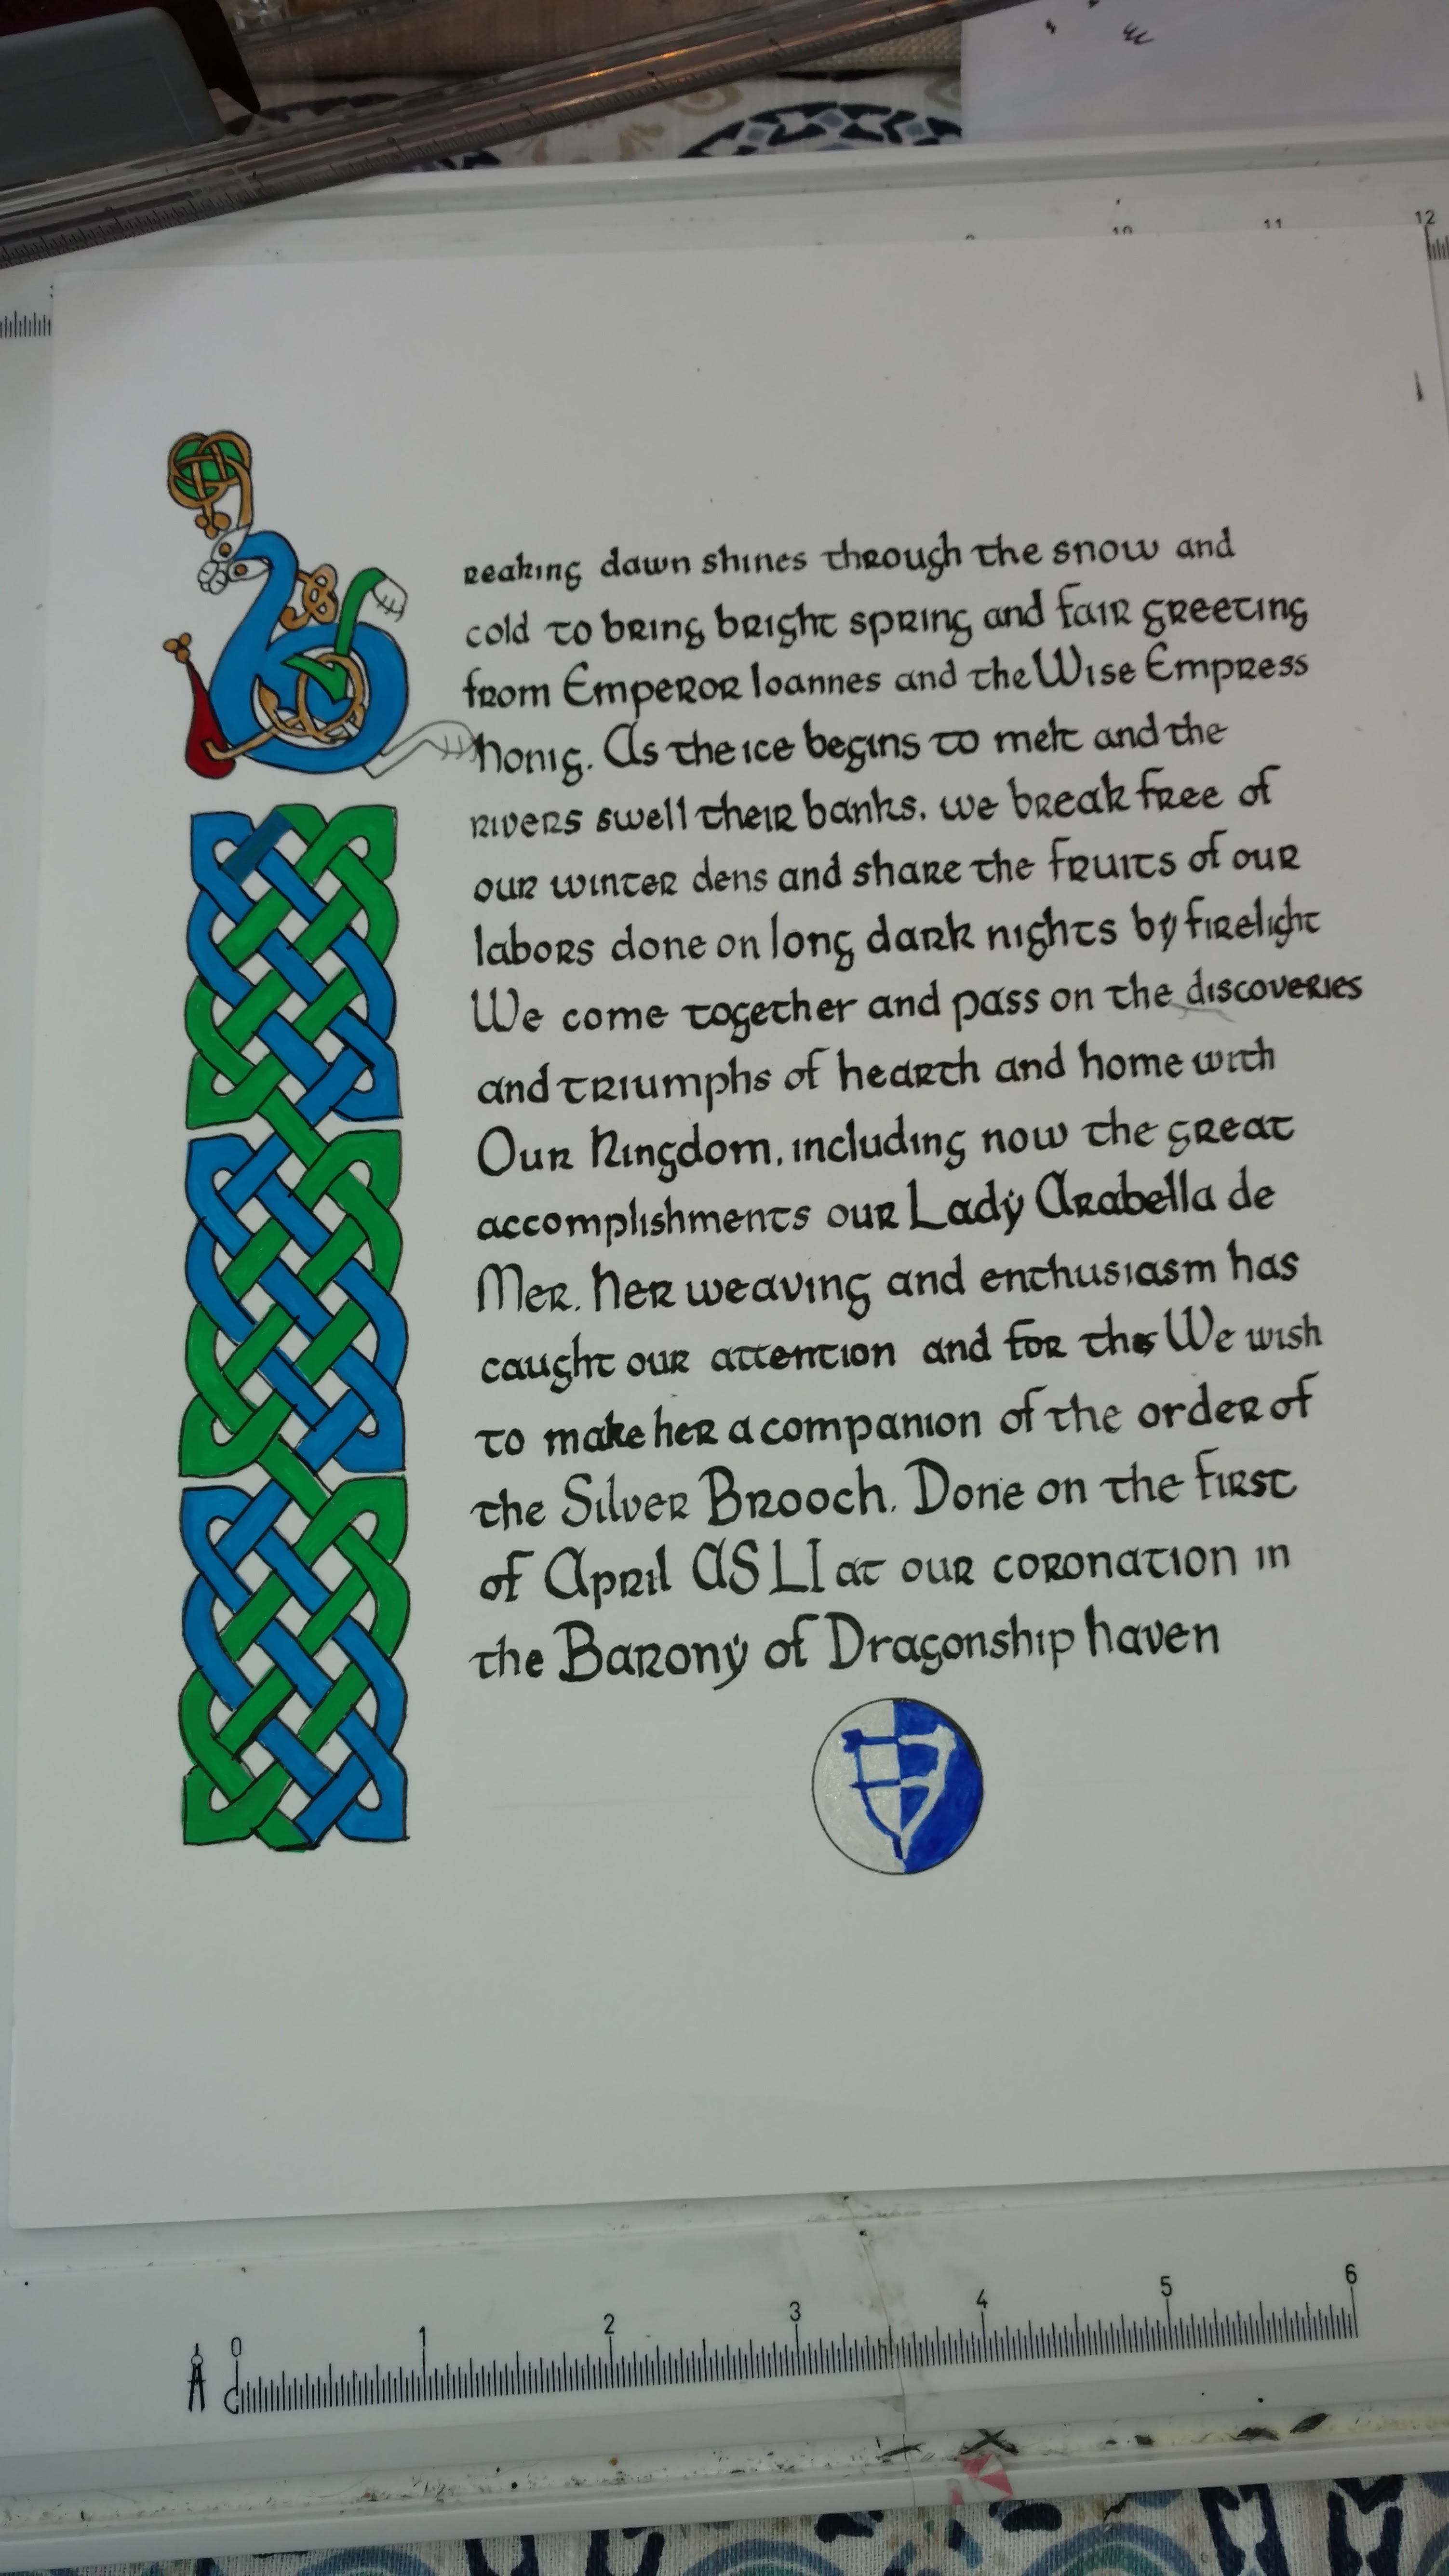 10 11 12
Breaking dawn shines through the snow and
cold to bring bright spring and fair greeting
from Emperor Ioannes and the Wise Empress
Honig. As the ice begins to melt and the
rivers swell their banks, we break free of
our winter dens and share the fruits of our
labors done on long dark nights by firelight
We come together and pass on the discoveries
and triumphs of hearth and home with
Our Kingdom, including now the great
accomplishments our Lady Arabella de
Mer. Her weaving and enthusiasm has
caught our attention and for this We wish
to make her a companion of the order of
the Silver Brooch. Done on the first
of April AS LI at our coronation in
the Barony of Dragonship haven
0 1 2 3 4 5 6